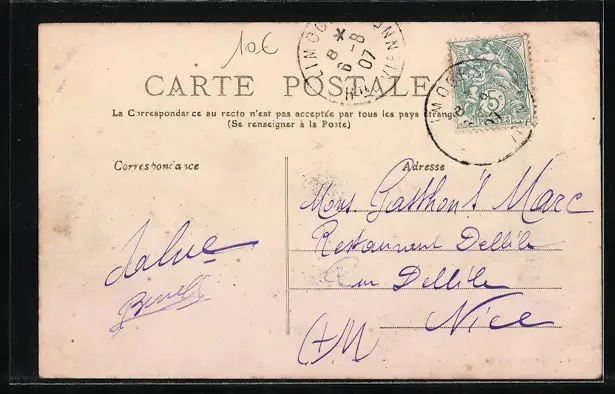 10€
CARTE POSTALE
La Correspondance au recto n'est pas acceptée par tous les pays étrangers
(Se renseigner à la Poste)
Correspondance
Adresse
Mons. Gasthon's Marc
Restaurant Dellile
Rue Dellile
Nice
Salue